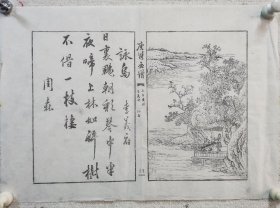 唐詩畫譜
詠烏
李義府
日裏颺朝彩琴中半
夜啼上林如許樹
不借一枝棲
周